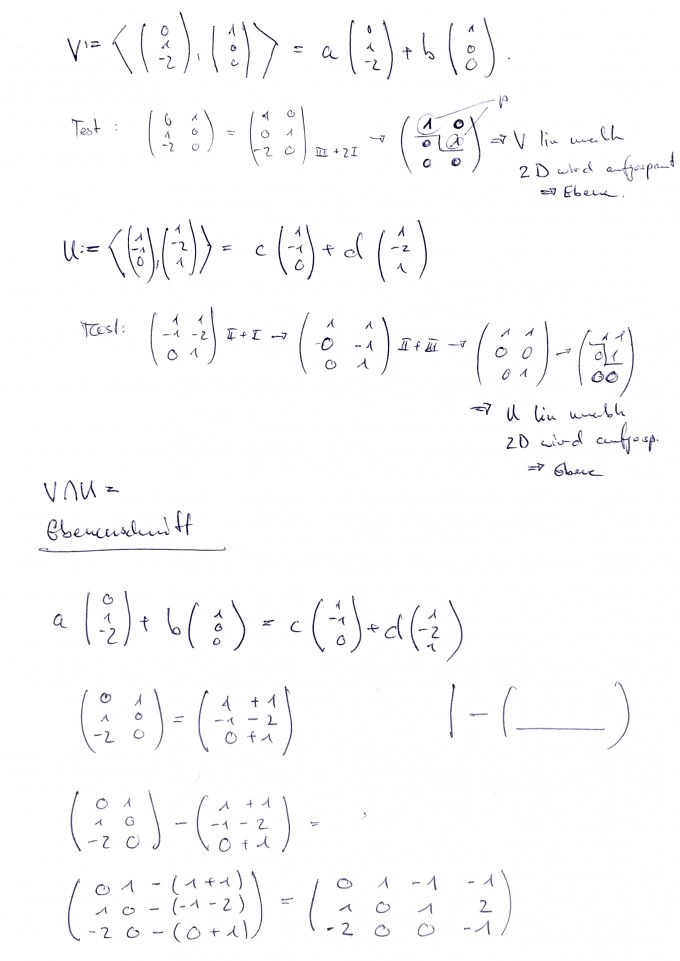 V := ⟨ (0 1 -2), (1 0 0) ⟩ = a (0 1 -2) + b (1 0 0).
Test: (0 1; 1 0; -2 0) = (1 0; 0 1; -2 0) III+2I → (1 0; 0 1; 0 0) ⇒ V lin unabh
2D wird aufgespant
⇒ Ebene.
U := ⟨ (1 -1 0), (1 -2 1) ⟩ = c (1 -1 0) + d (1 -2 1)
Test: (1 1; -1 -2; 0 1) II+I → (1 1; -0 -1; 0 1) II+III → (1 1; 0 0; 0 1) → (1 1; 0 1; 0 0)
⇒ U lin unabh
2D wird aufgesp.
⇒ Ebene
V∩U =
Ebenenschnitt
a (0 1 -2) + b (1 0 0) = c (1 -1 0) + d (1 -2 1)
(0 1; 1 0; -2 0) = (1 +1; -1 -2; 0 +1) | - ( )
(0 1; 1 0; -2 0) - (1 +1; -1 -2; 0 +1) =
(0 1 -(1+1); 1 0 -(-1-2); -2 0 -(0+1)) = (0 1 -1 -1; 1 0 1 2; -2 0 0 -1)